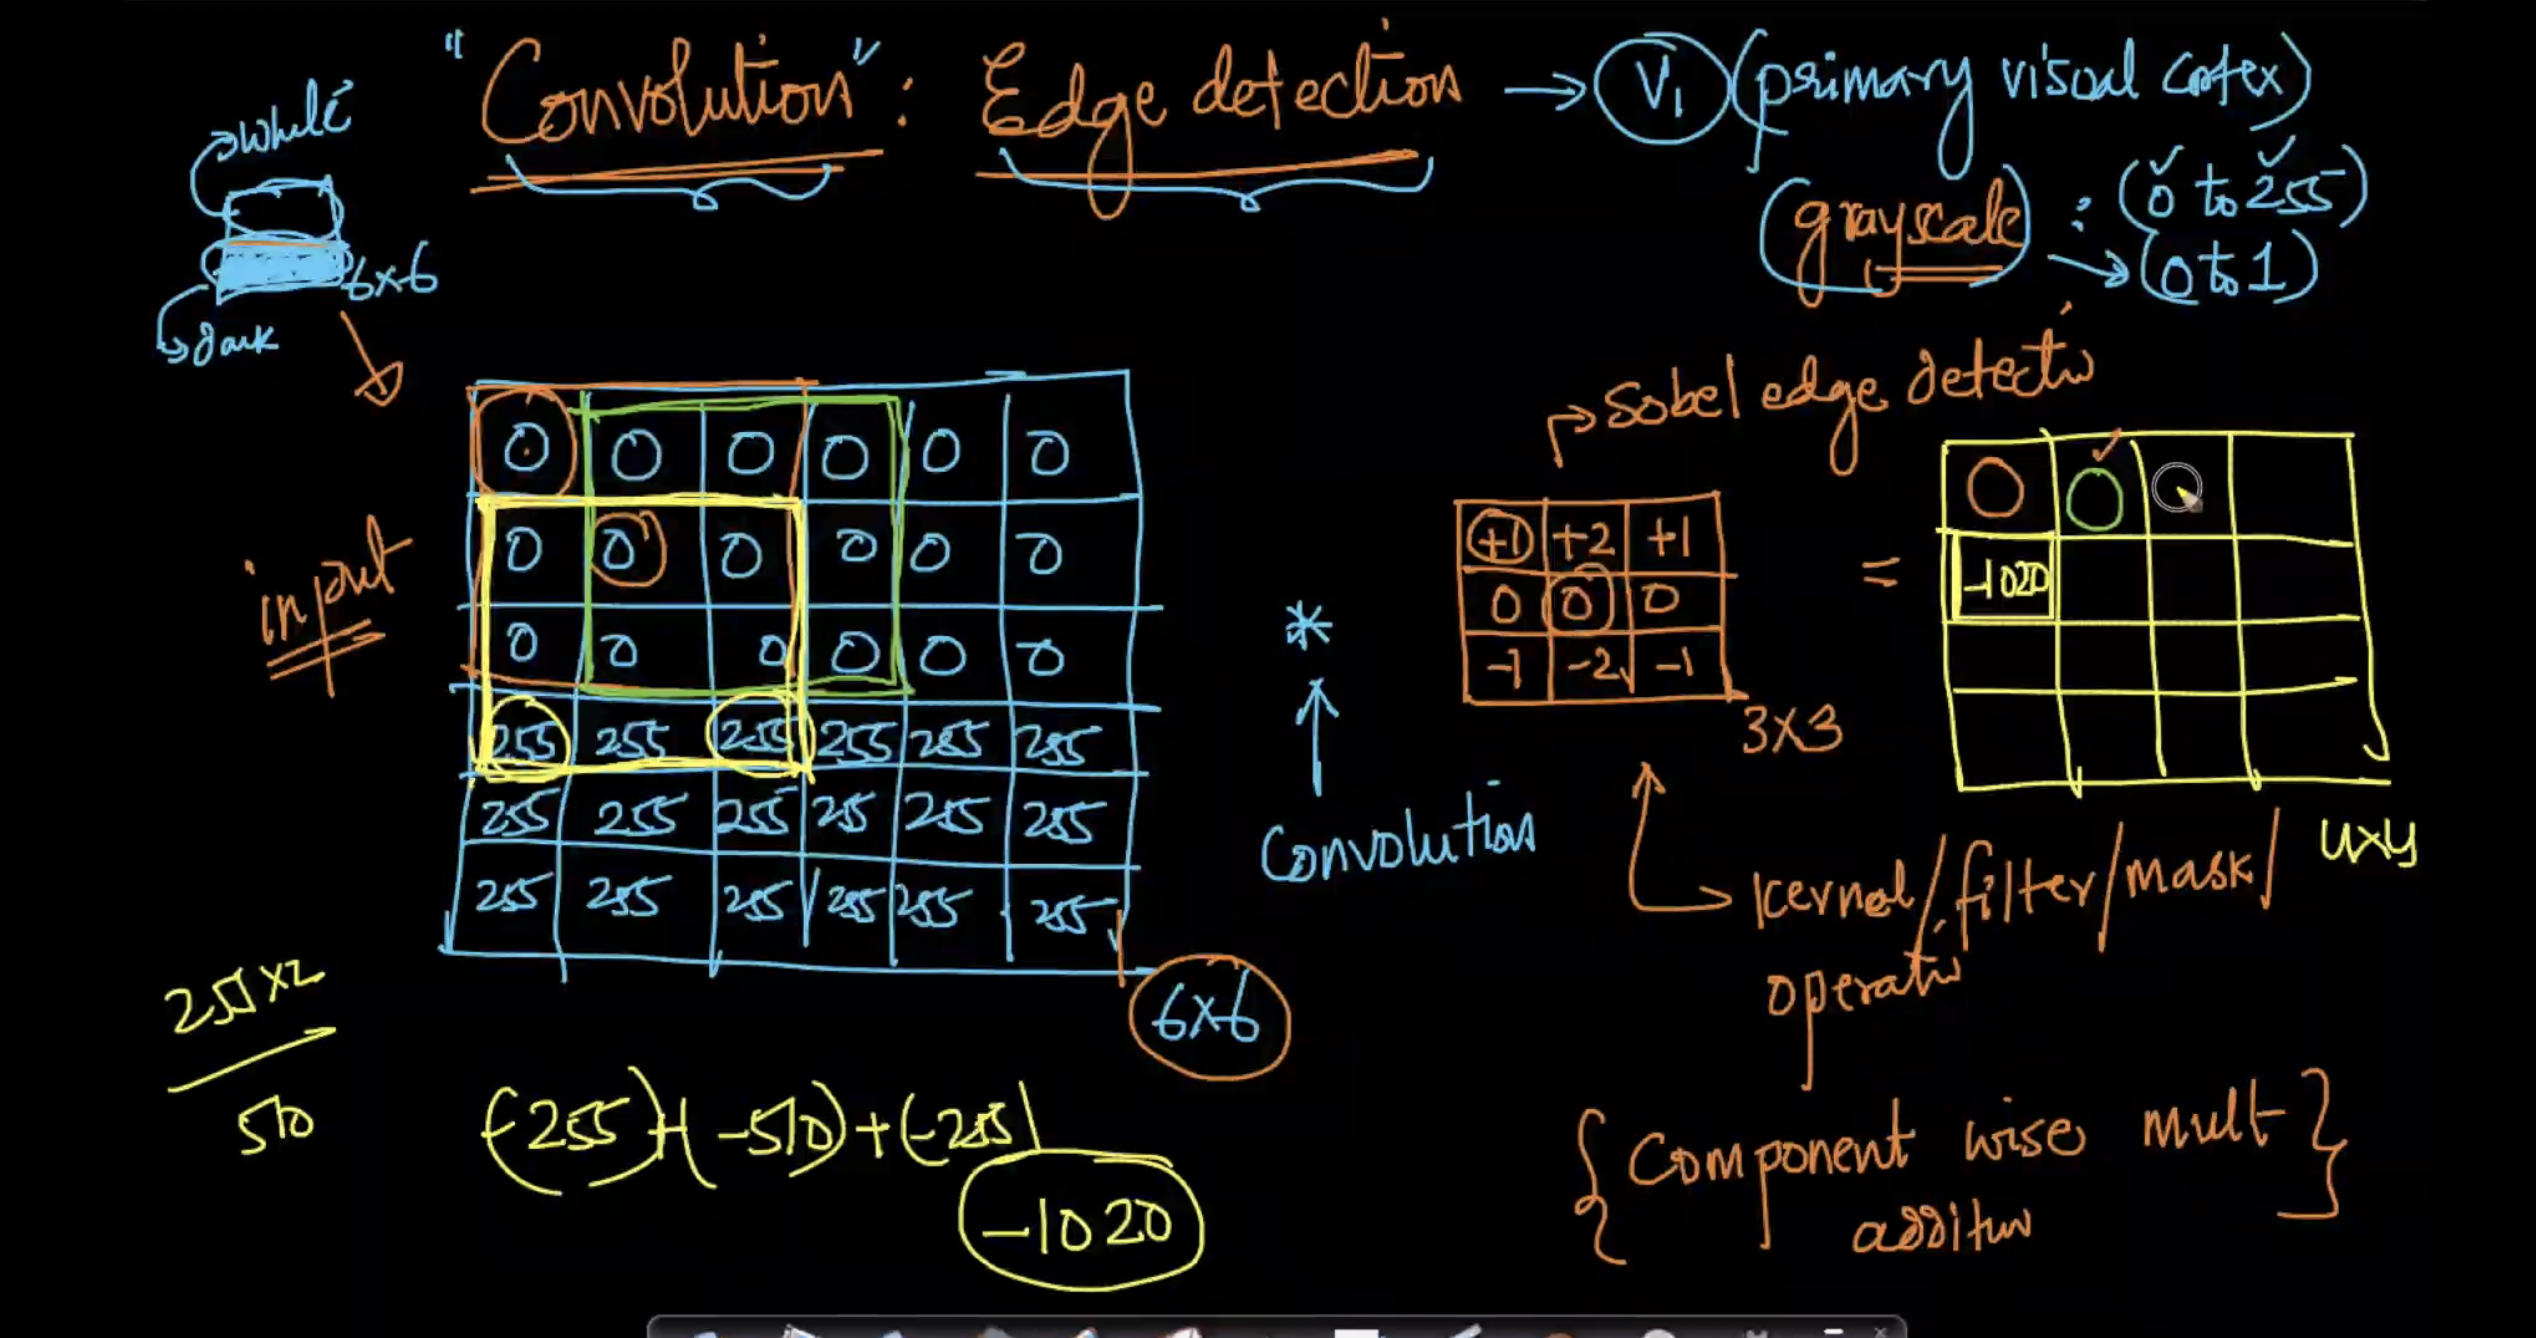 "Convolution" : Edge detection → V1 (primary visual cortex)
white
(grayscale) : (0 to 255)
→ (0 to 1)
6x6
dark
Sobel edge detectio
0 0 0 0 0 0
0 0 0 0 0 0
0 0 0 0 0 0
255 255 255 255 255 255
255 255 255 255 255 255
255 255 255 255 255 255
6x6
input
*
Convolution
+1 +2 +1
0 0 0
-1 -2 -1
3x3
=
0 0
-1020
4x4
kernel/filter/mask/
operatio
255x2
510
(-255)+(-510)+(-255)
-1020
{Component wise mult}
addition